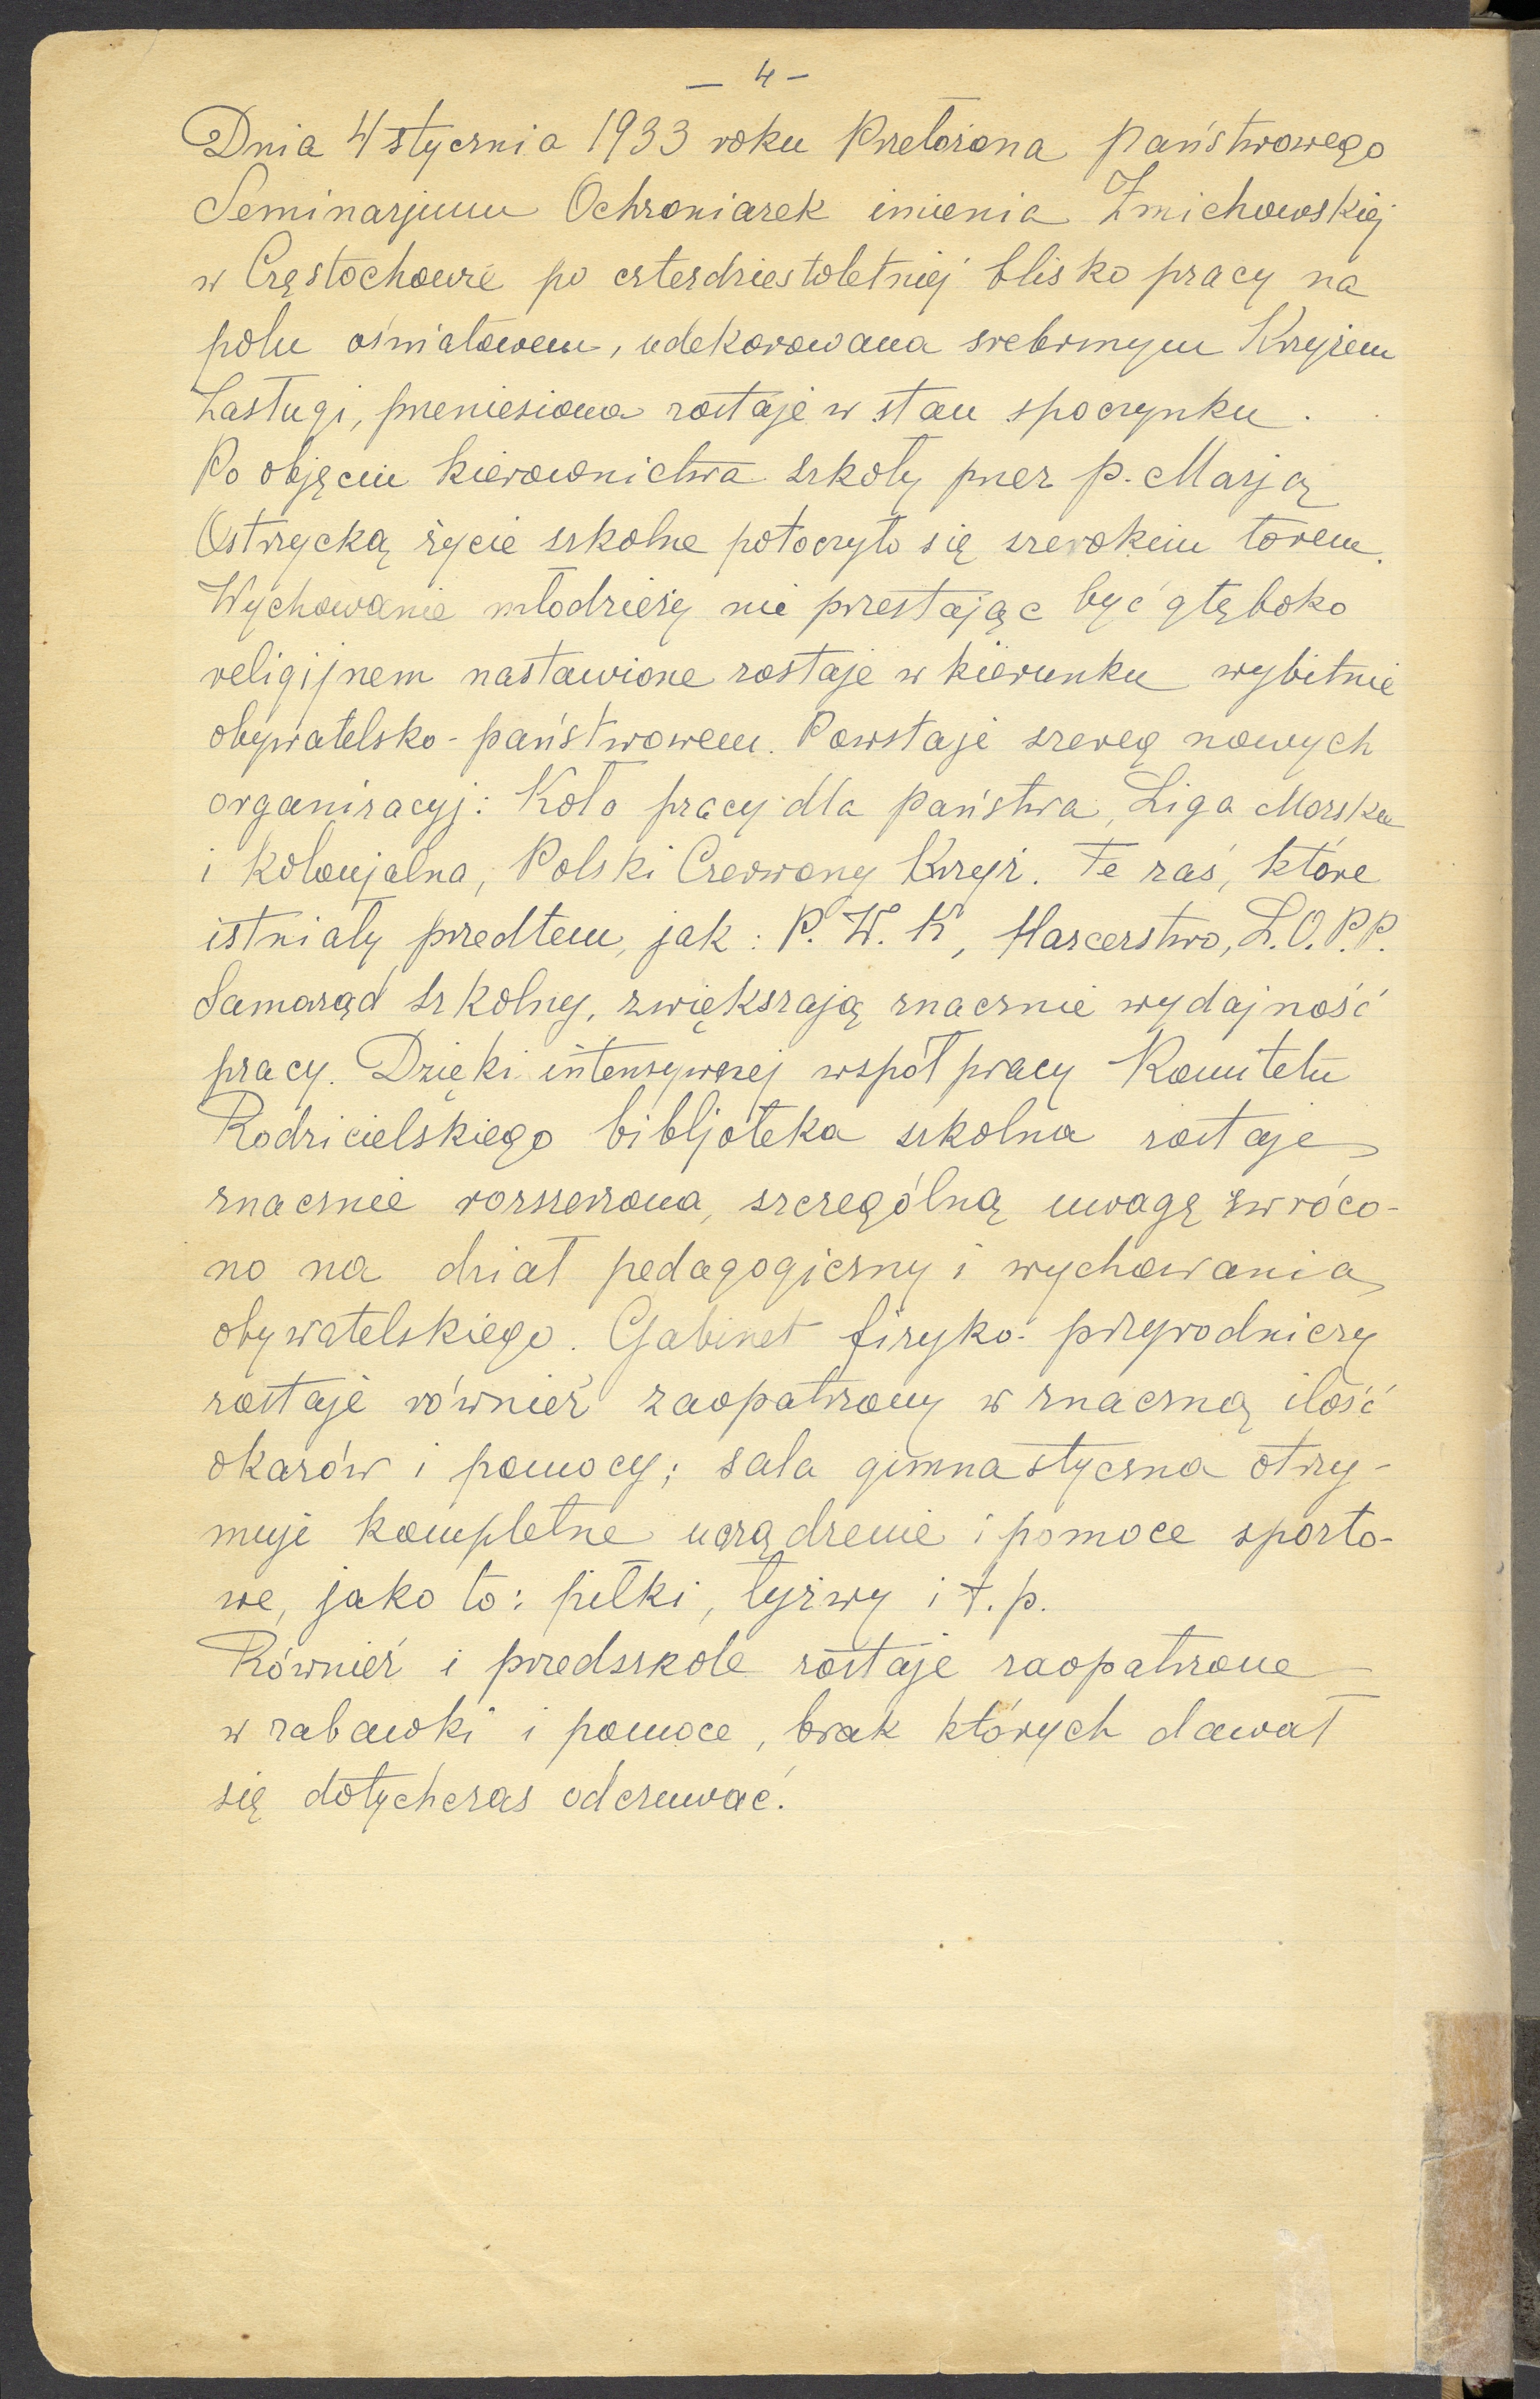 — 4 —
Dnia 4 stycznia 1933 roku Przełożona Państwowego
Seminarjum Ochroniarek imienia Żmichowskiej
w Częstochowie po czterdziestoletniej blisko pracy na
polu oświatowem, udekorowana srebrnym Krzyżem
Zasługi, przeniesiona zostaje w stan spoczynku.
Po objęciu kierownictwa szkoły przez p. Marją
Ostrzycką życie szkolne potoczyło się szerokim torem.
Wychowanie młodzieży nie przestając być głęboko
religijnem nastawione zostaje w kierunku wybitnie
obywatelsko-państwowem. Powstaje szereg nowych
organizacyj: Koło pracy dla Państwa, Liga Morska
i Kolonjalna, Polski Czerwony Krzyż. Te zaś, które
istniały przedtem, jak: P. W. K, Harcerstwo, L.O.P.P.
Samorząd szkolny, zwiększają znacznie wydajność
pracy. Dzięki intensywnej współpracy Komitetu
Rodzicielskiego bibljoteka szkolna zostaje
znacznie rozszerzona, szczególną uwagę zwróco-
no na dział pedagogiczny i wychowania
obywatelskiego. Gabinet fizyko-przyrodniczy
zostaje również zaopatrzony w znaczną ilość
okazów i pomocy; sala gimnastyczna otrzy-
muje kompletne urządzenie i pomoce sporto-
we, jako to: piłki, łyżwy i t. p.
Również i przedszkole zostaje zaopatrzone
w zabawki i pomoce, brak których dawał
się dotychczas odczuwać.